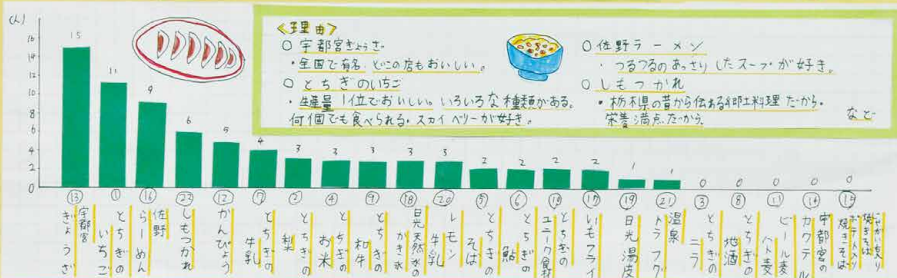 (人)
16
14
12
10
8
6
4
2
0
15
11
9
6
5
4
3
3
3
3
3
2
2
2
2
1
1
0
0
0
0
0
<理由>
○ 宇都宮ぎょうざ
・全国で有名。どこの店もおいしい。
○ とちぎのいちご
・生産量1位でおいしい。いろいろな種類がある。
何個でも食べられる。スカイベリーが好き。
○ 佐野ラーメン
・つるつるのあっさりしたスープが好き。
○ しもつかれ
・栃木県の昔から伝わる郷土料理だから。
栄養満点だから。
など
⑬ 宇都宮ぎょうざ
① とちぎのいちご
⑯ 佐野らーめん
㉒ しもつかれ
⑫ かんぴょう
⑦ とちぎの牛乳
② とちぎの梨
④ とちぎのお米
⑨ とちぎの和牛
⑱ 日光天然水のかき氷
⑳ レモン牛乳
⑤ とちぎのそば
⑥ とちぎの鮎
⑩ とちぎのユニーク食材
⑰ いもフライ
⑲ 日光湯波
㉑ 温泉トラフグ
③ とちぎのニラ
⑧ とちぎの地酒
⑪ ビール麦 ハト麦
⑭ 宇都宮カクテル
⑮ じゃがいも入り焼きそば
焼きそば